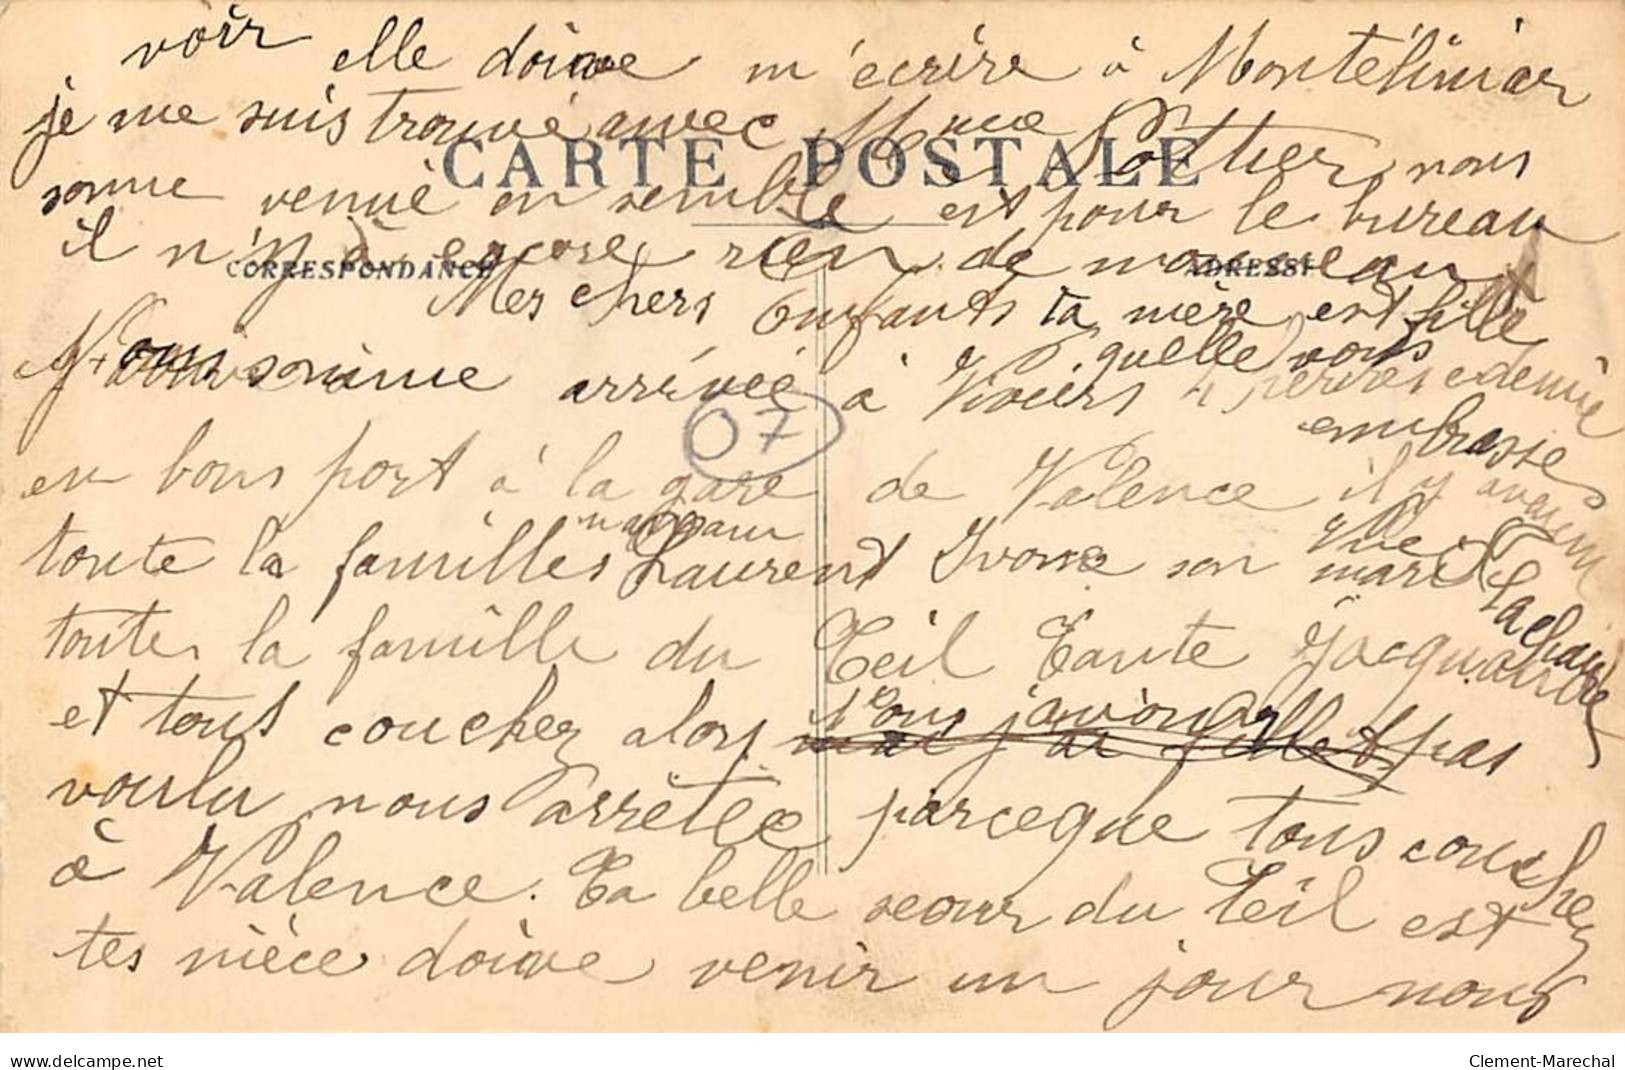 voir elle doive m'écrire à Montélimar
je me suis trouvé avec Mme Pottier nous
somme venue en semble est pour le bureau
CARTE POSTALE
il n'y a encore rien de nouveau
CORRESPONDANCE
ADRESSE
Mes chers Enfants ta mère est fille
quelle vous
embrasse
Nous somme arrivée à Viviers
07
en bons port à la gare de Valence il y avait
maman
toute la familles Laurent Ivonne son mari
toute la famille du Teil Tante Jacqua
et tous couchez alors Nous javons pas
voulu nous arrêtée parceque tous couchez
à Valence. Ta belle seour du Teil est
tes nièce doive venir un jour nous
www.delcampe.net
Clement-Marechal